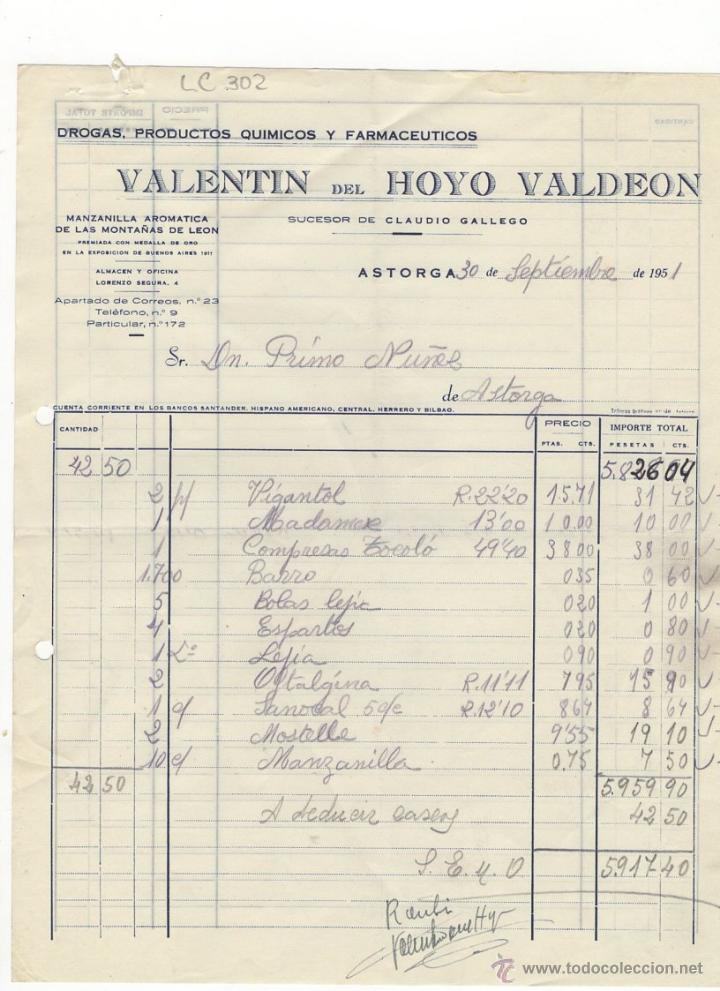 LC.302
DROGAS, PRODUCTOS QUIMICOS Y FARMACEUTICOS
VALENTIN DEL HOYO VALDEON
MANZANILLA AROMATICA
DE LAS MONTAÑAS DE LEON
PREMIADA CON MEDALLA DE ORO
EN LA EXPOSICION DE BUENOS AIRES 1911
ALMACEN Y OFICINA
LORENZO SEGURA, 4
Apartado de Correos, n.º 23
Teléfono, n.º 9
Particular, n.º 172
SUCESOR DE CLAUDIO GALLEGO
ASTORGA 30 de Septiembre de 1951
Sr. Dn. Primo Nuñez
de Astorga
CUENTA CORRIENTE EN LOS BANCOS SANTANDER, HISPANO AMERICANO, CENTRAL, HERRERO Y BILBAO.
CANTIDAD PRECIO IMPORTE TOTAL
PTAS. CTS. PESETAS CTS.
42 50 5.826 04
2 p/ Vigantol R.22'20 15.71 31 42
1 Madamex 13'00 10.00 10 00
1 Compresas 49'40 38 00 38 00
1.700 Barro 035 0 60
5 Bolas lejia 020 1 00
4 Espartos 020 0 80
1 Lº Lejia 090 0 90
2 Oftalgina R.11'11 795 15 90
1 c/ Sanocal 5c/c R.12'10 864 8 64
2 Mostelle 9'55 19 10
10 c/ Manzanilla 0.75 7 50
42 50 5.959 90
A deducir cascos 42 50
S. E. u. O 5.917 40
Recibi
www.todocoleccion.net